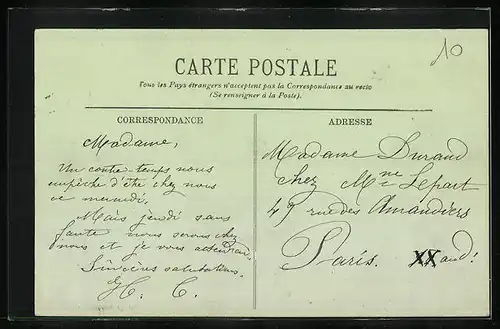 10
CARTE POSTALE
Tous les Pays étrangers n'acceptent pas la Correspondance au recto
(Se renseigner à la Poste).
CORRESPONDANCE
Madame,
Un contre-temps nous
empêche d'être chez nous
ce mercredi.
Mais jeudi sans
faute nous serons chez
nous et je vous attendrai.
Sincères salutations
H. C.
ADRESSE
Madame Durand
chez Mme Lepart
49 rue des Amandiers
Paris. XX